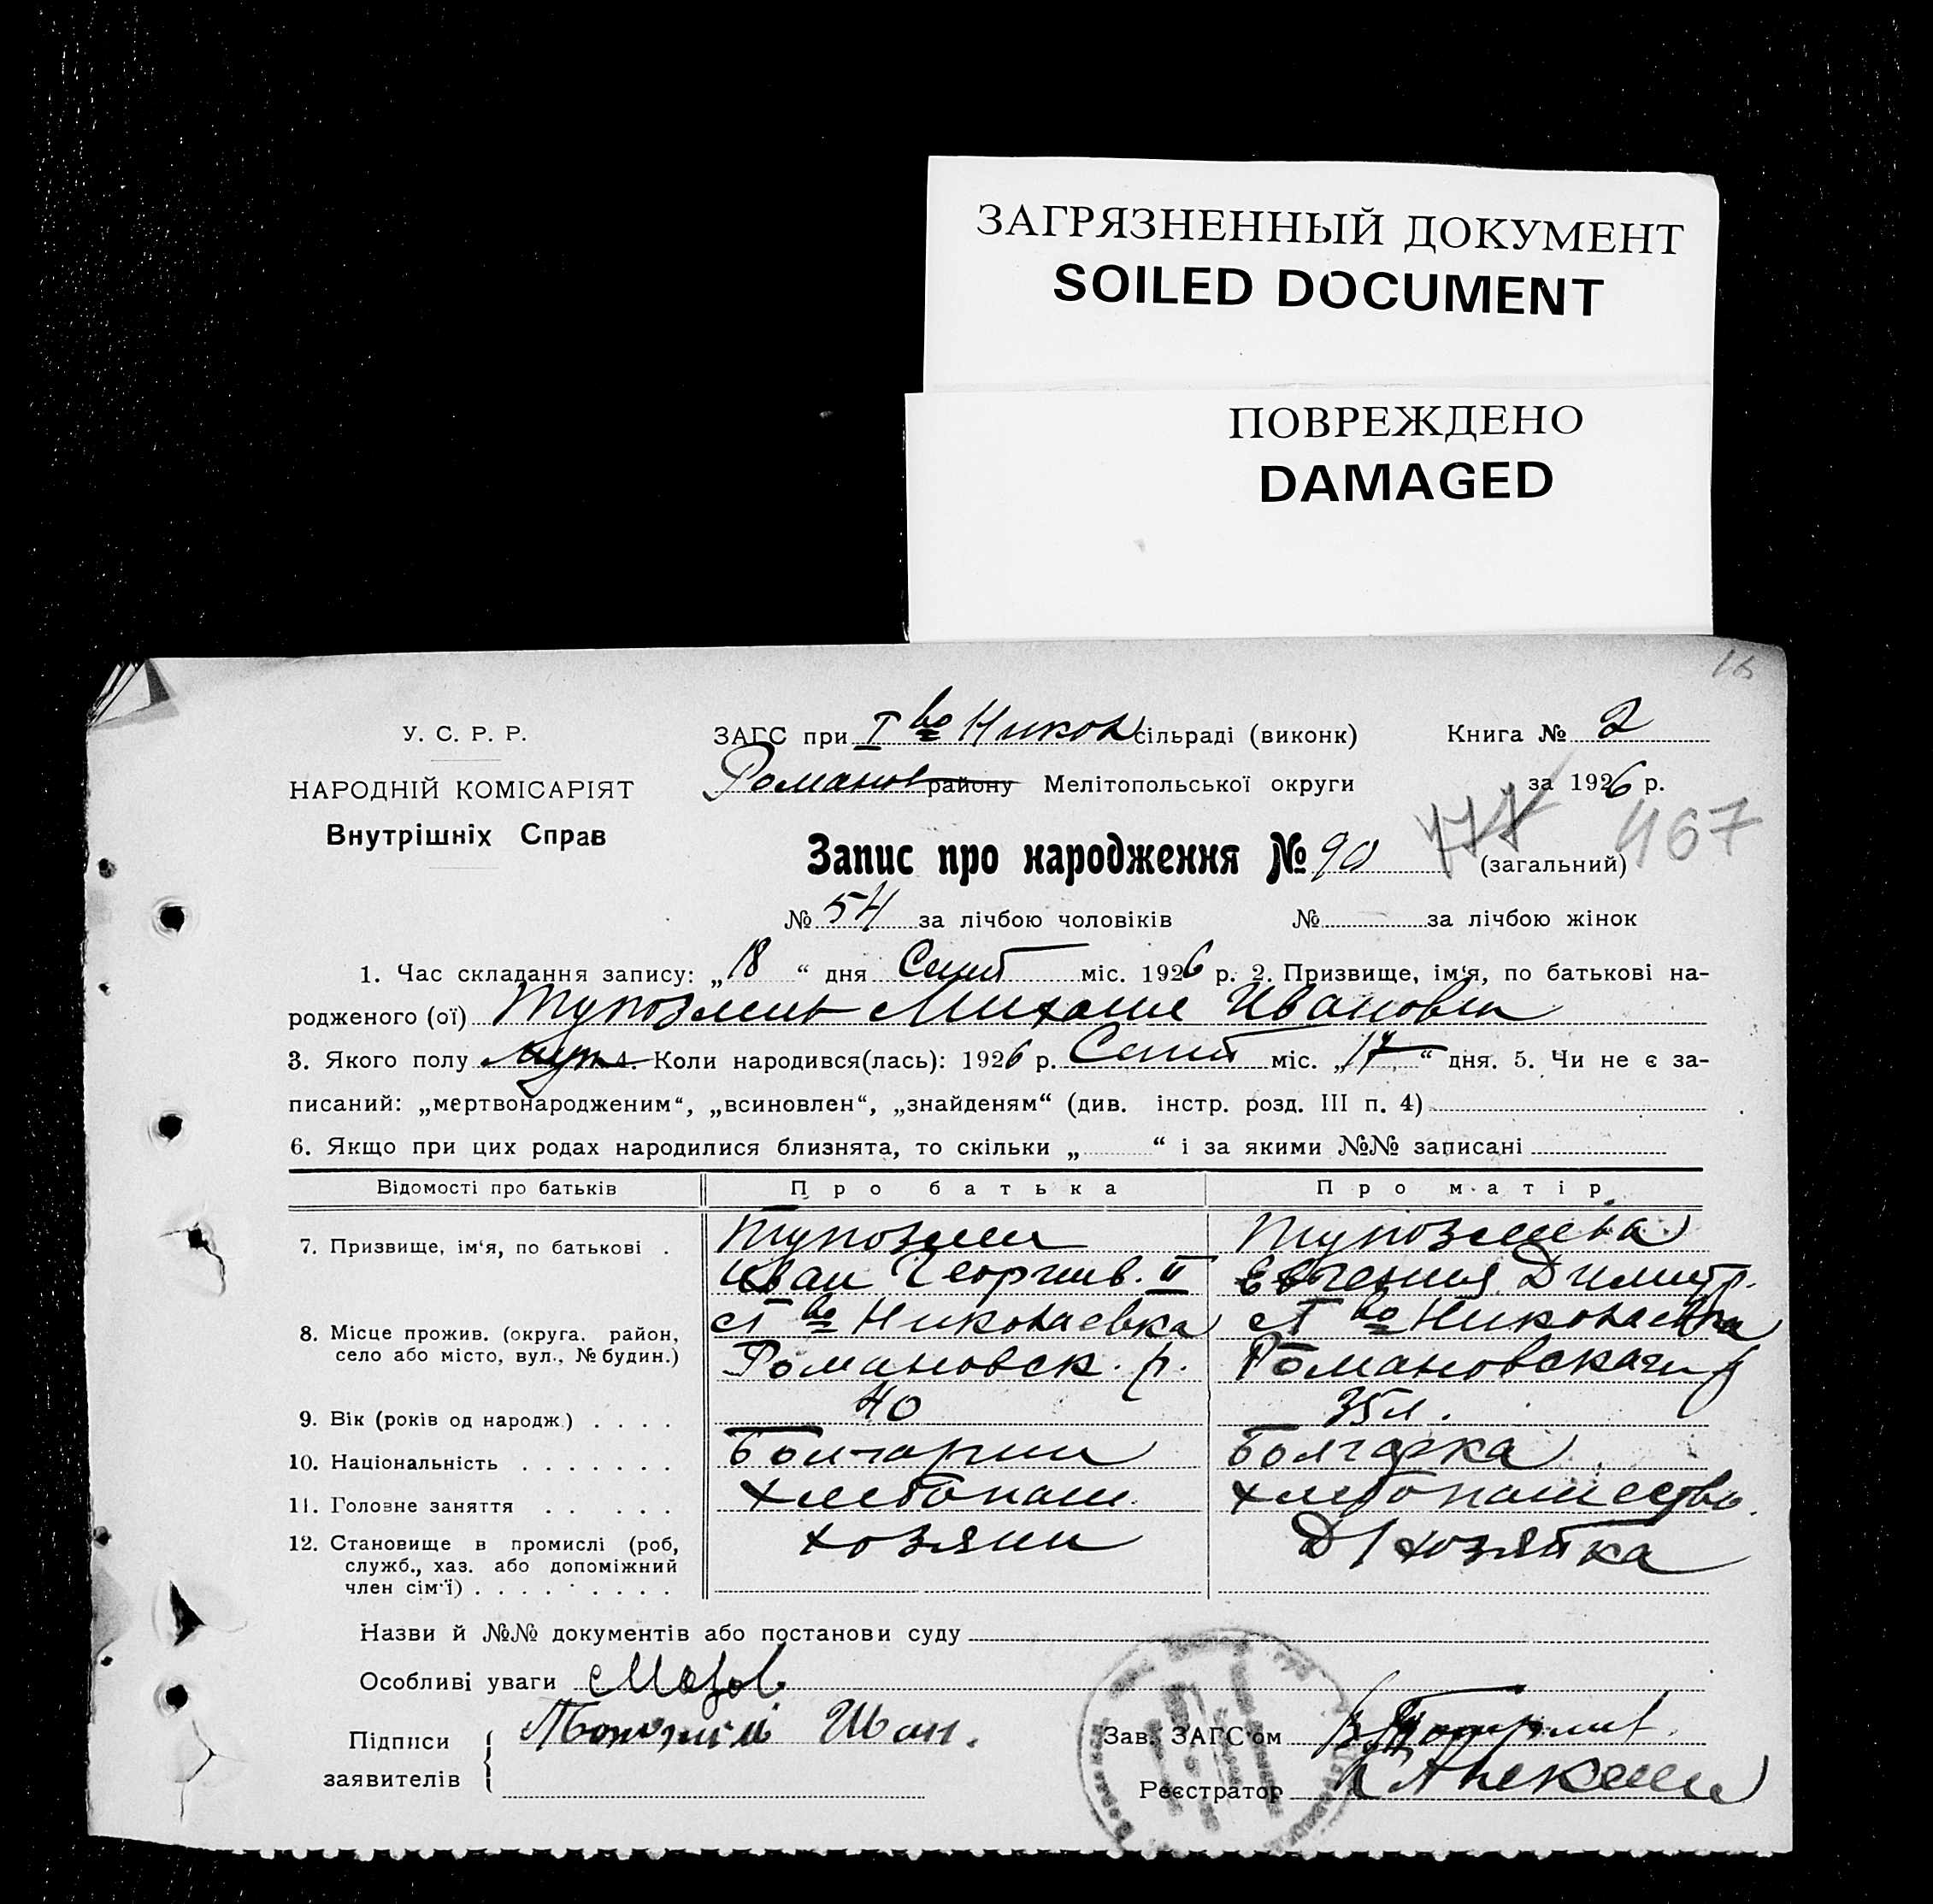 16
ЗАГРЯЗНЕННЫЙ ДОКУМЕНТ
SOILED DOCUMENT
ПОВРЕЖДЕНО
DAMAGED
У. С. Р. Р.
НАРОДНІЙ КОМІСАРІЯТ
Внутрішніх Справ
ЗАГС при I во Никол сільраді (виконк) Книга № 2
Романов району Мелітопольської округи за 1926 р.
Запис про народження № 90 (загальний) 467
№ 54 за лічбою чоловіків № за лічбою жінок
1. Час складання запису: „18“ дня Сент міс. 1926 р. 2. Призвище, ім‘я, по батькові на-
родженого (ої) Тупозлиев Михаил Иванович
3. Якого полу муж 4. Коли народився(лась): 1926 р. Сент міс. „17“ дня. 5. Чи не є за-
писаний: „мертвонародженим“, „всиновлен“, „знайденям“ (див. інстр. розд. III п. 4)
6. Якщо при цих родах народилися близнята, то скільки „ “ і за якими №№ записані
Відомості про батьків Про батька Про матір
7. Призвище, ім‘я, по батькові .
Иван Георгиев. II Евгения Димитр.
8. Місце прожив. (округа, район, село або місто, вул., № будин.)
во Николаевка во Николаевка
Романовск. р. Романовскаго р
9. Вік (років од народж.) . . . . 40 35 л.
10. Національність . . . . . . . Болгарин Болгарка
11. Головне заняття . . . . . . Хлебопаш. Хлебопашество
12. Становище в промислі (роб, служб., хаз. або допоміжний член сім‘ї) . . . . . . . . . Хозяин Д/хозяйка
Назви й №№ документів або постанови суду
Особливі уваги
Підписи заявителів Иван.
Зав. ЗАГС‘ом
Реєстратор